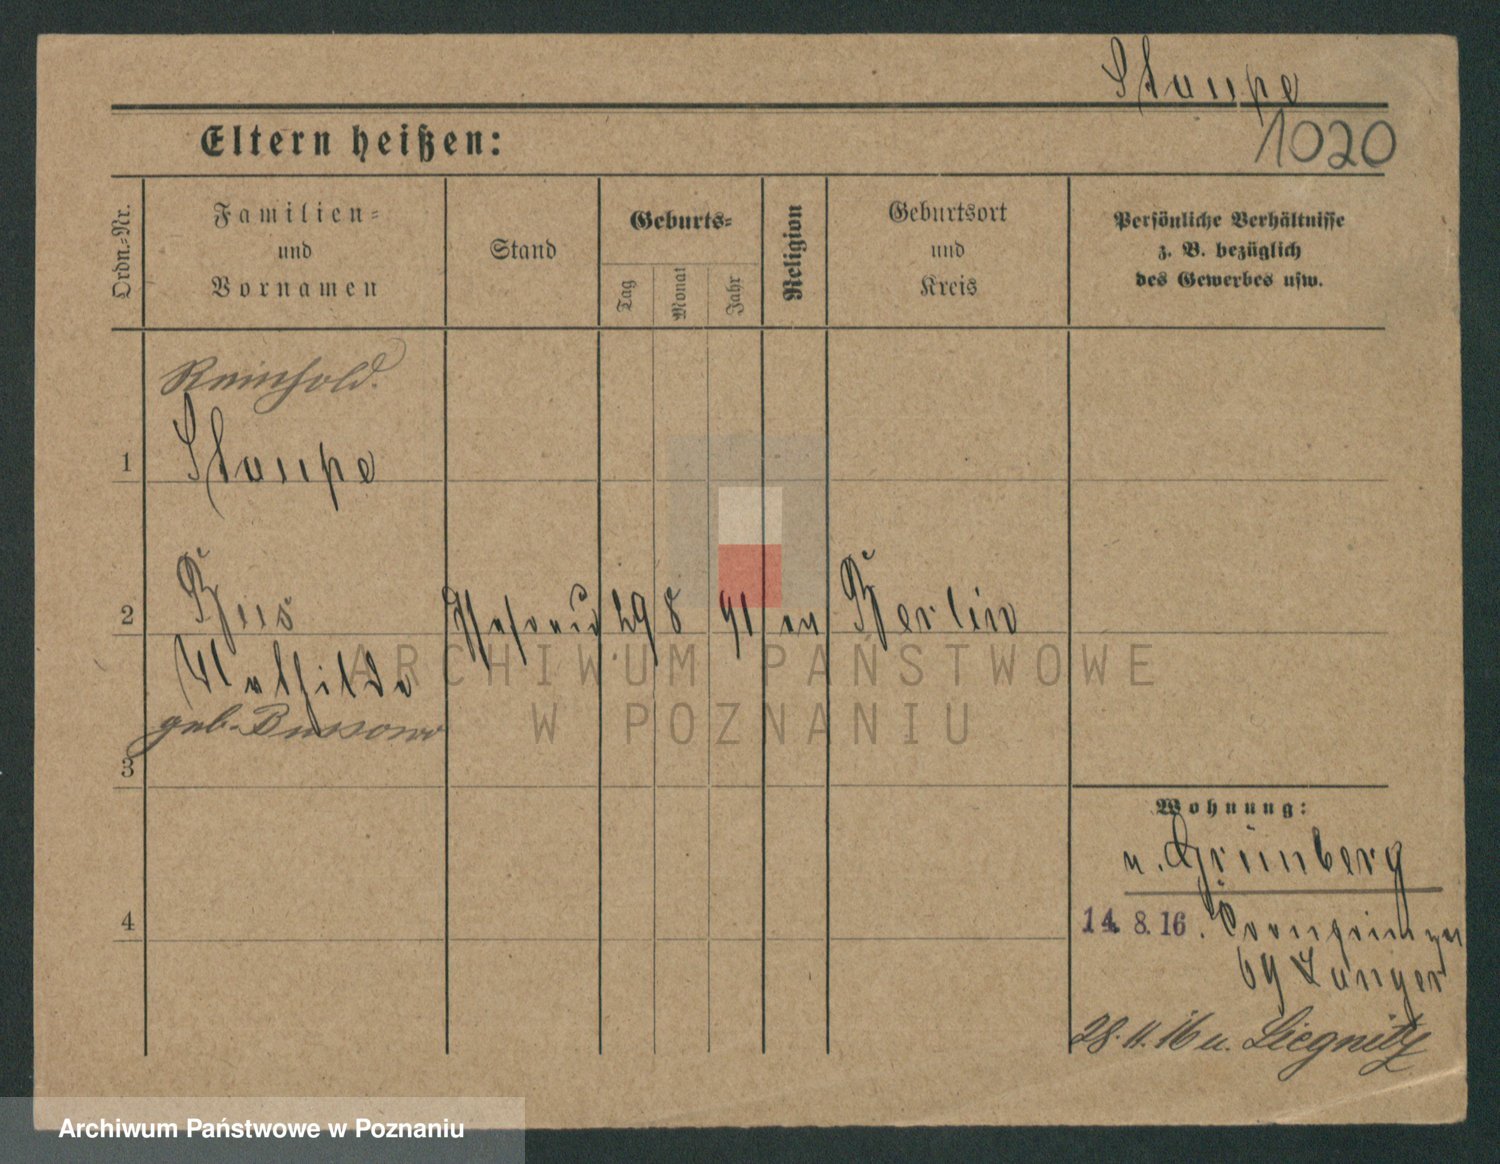 Staupe
1020
Eltern heißen:
Ordn.-Nr.
Familien-
und
Vornamen
Stand
Geburts-
Tag
Monat
Jahr
Religion
Geburtsort
und
Kreis
Persönliche Verhältnisse
z. B. bezüglich
des Gewerbes usw.
Reinhold
1 Staupe
2 29 8 91 ev Berlin
Mathilde
geb. Bussow
3
Wohnung:
n. Grünberg
4
14. 8. 16. Kronprinzen
69 Langer
28. 11. 16 n. Liegnitz
ARCHIWUM PAŃSTWOWE
W POZNANIU
Archiwum Państwowe w Poznaniu